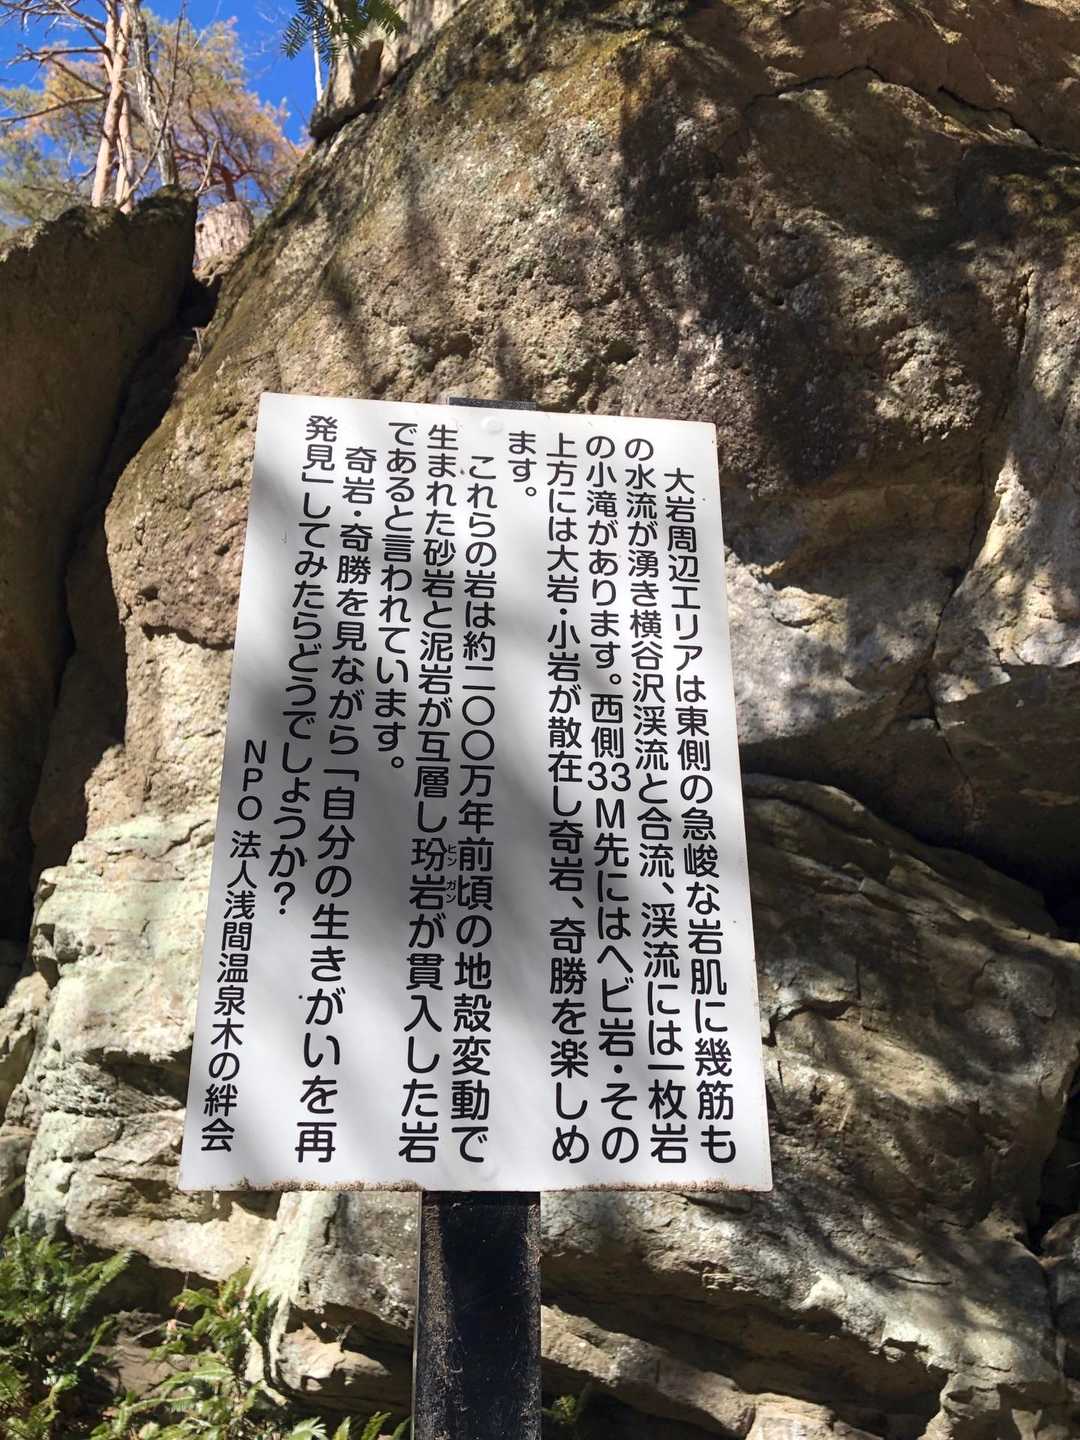 大岩周辺エリアは東側の急峻な岩肌に幾筋も
の水流が湧き横谷沢渓流と合流、渓流には一枚岩
の小滝があります。西側33M先にはヘビ岩・その
上方には大岩・小岩が散在し奇岩、奇勝を楽しめ
ます。
これらの岩は約二〇〇万年前頃の地殻変動で
生まれた砂岩と泥岩が互層し玢岩が貫入した岩
ヒンガン
であると言われています。
奇岩・奇勝を見ながら「自分の生きがいを再
発見」してみたらどうでしょうか?
NPO法人浅間温泉木の絆会